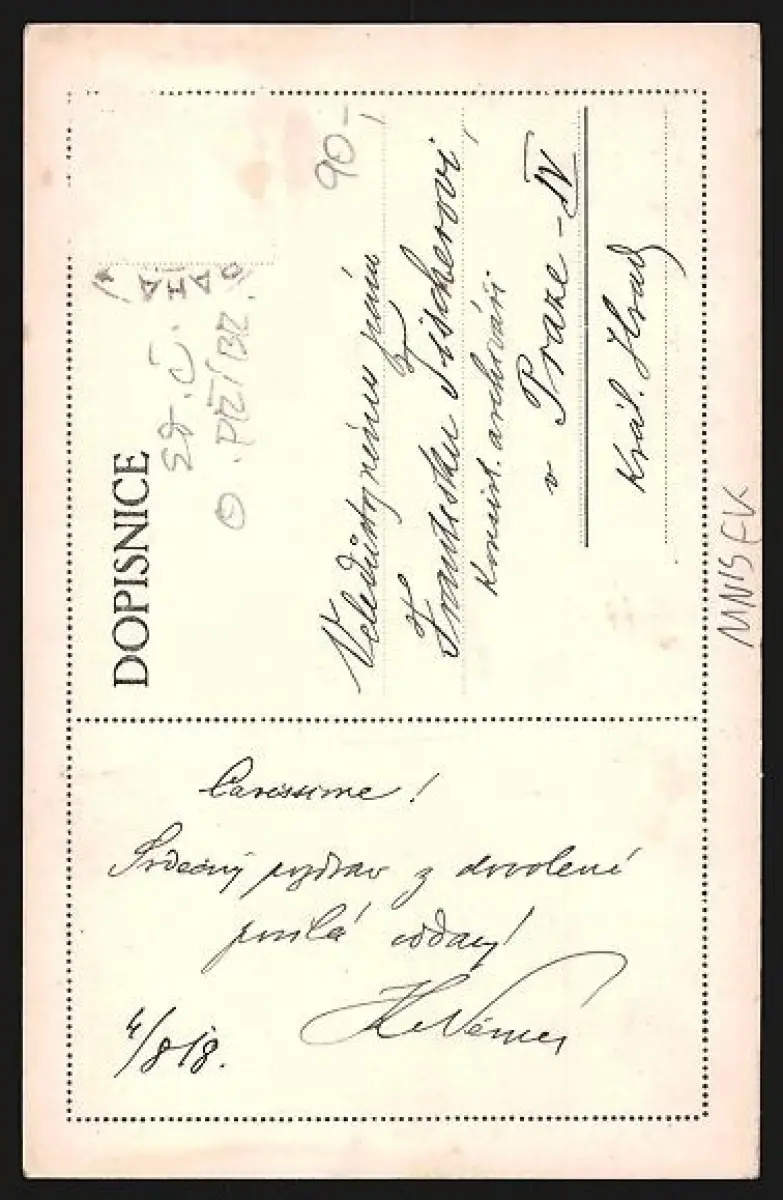 DOPISNICE
90,-
O. PŘÍBR.
Veledůstojnému pánu
Františku Fischerovi,
Konsist. archiváři
v Praze - IV
Král. Hrad
MNISEK
Carissime!
Srdečný pozdrav z dovolené
posílá oddaný
Němec
4/8 18.